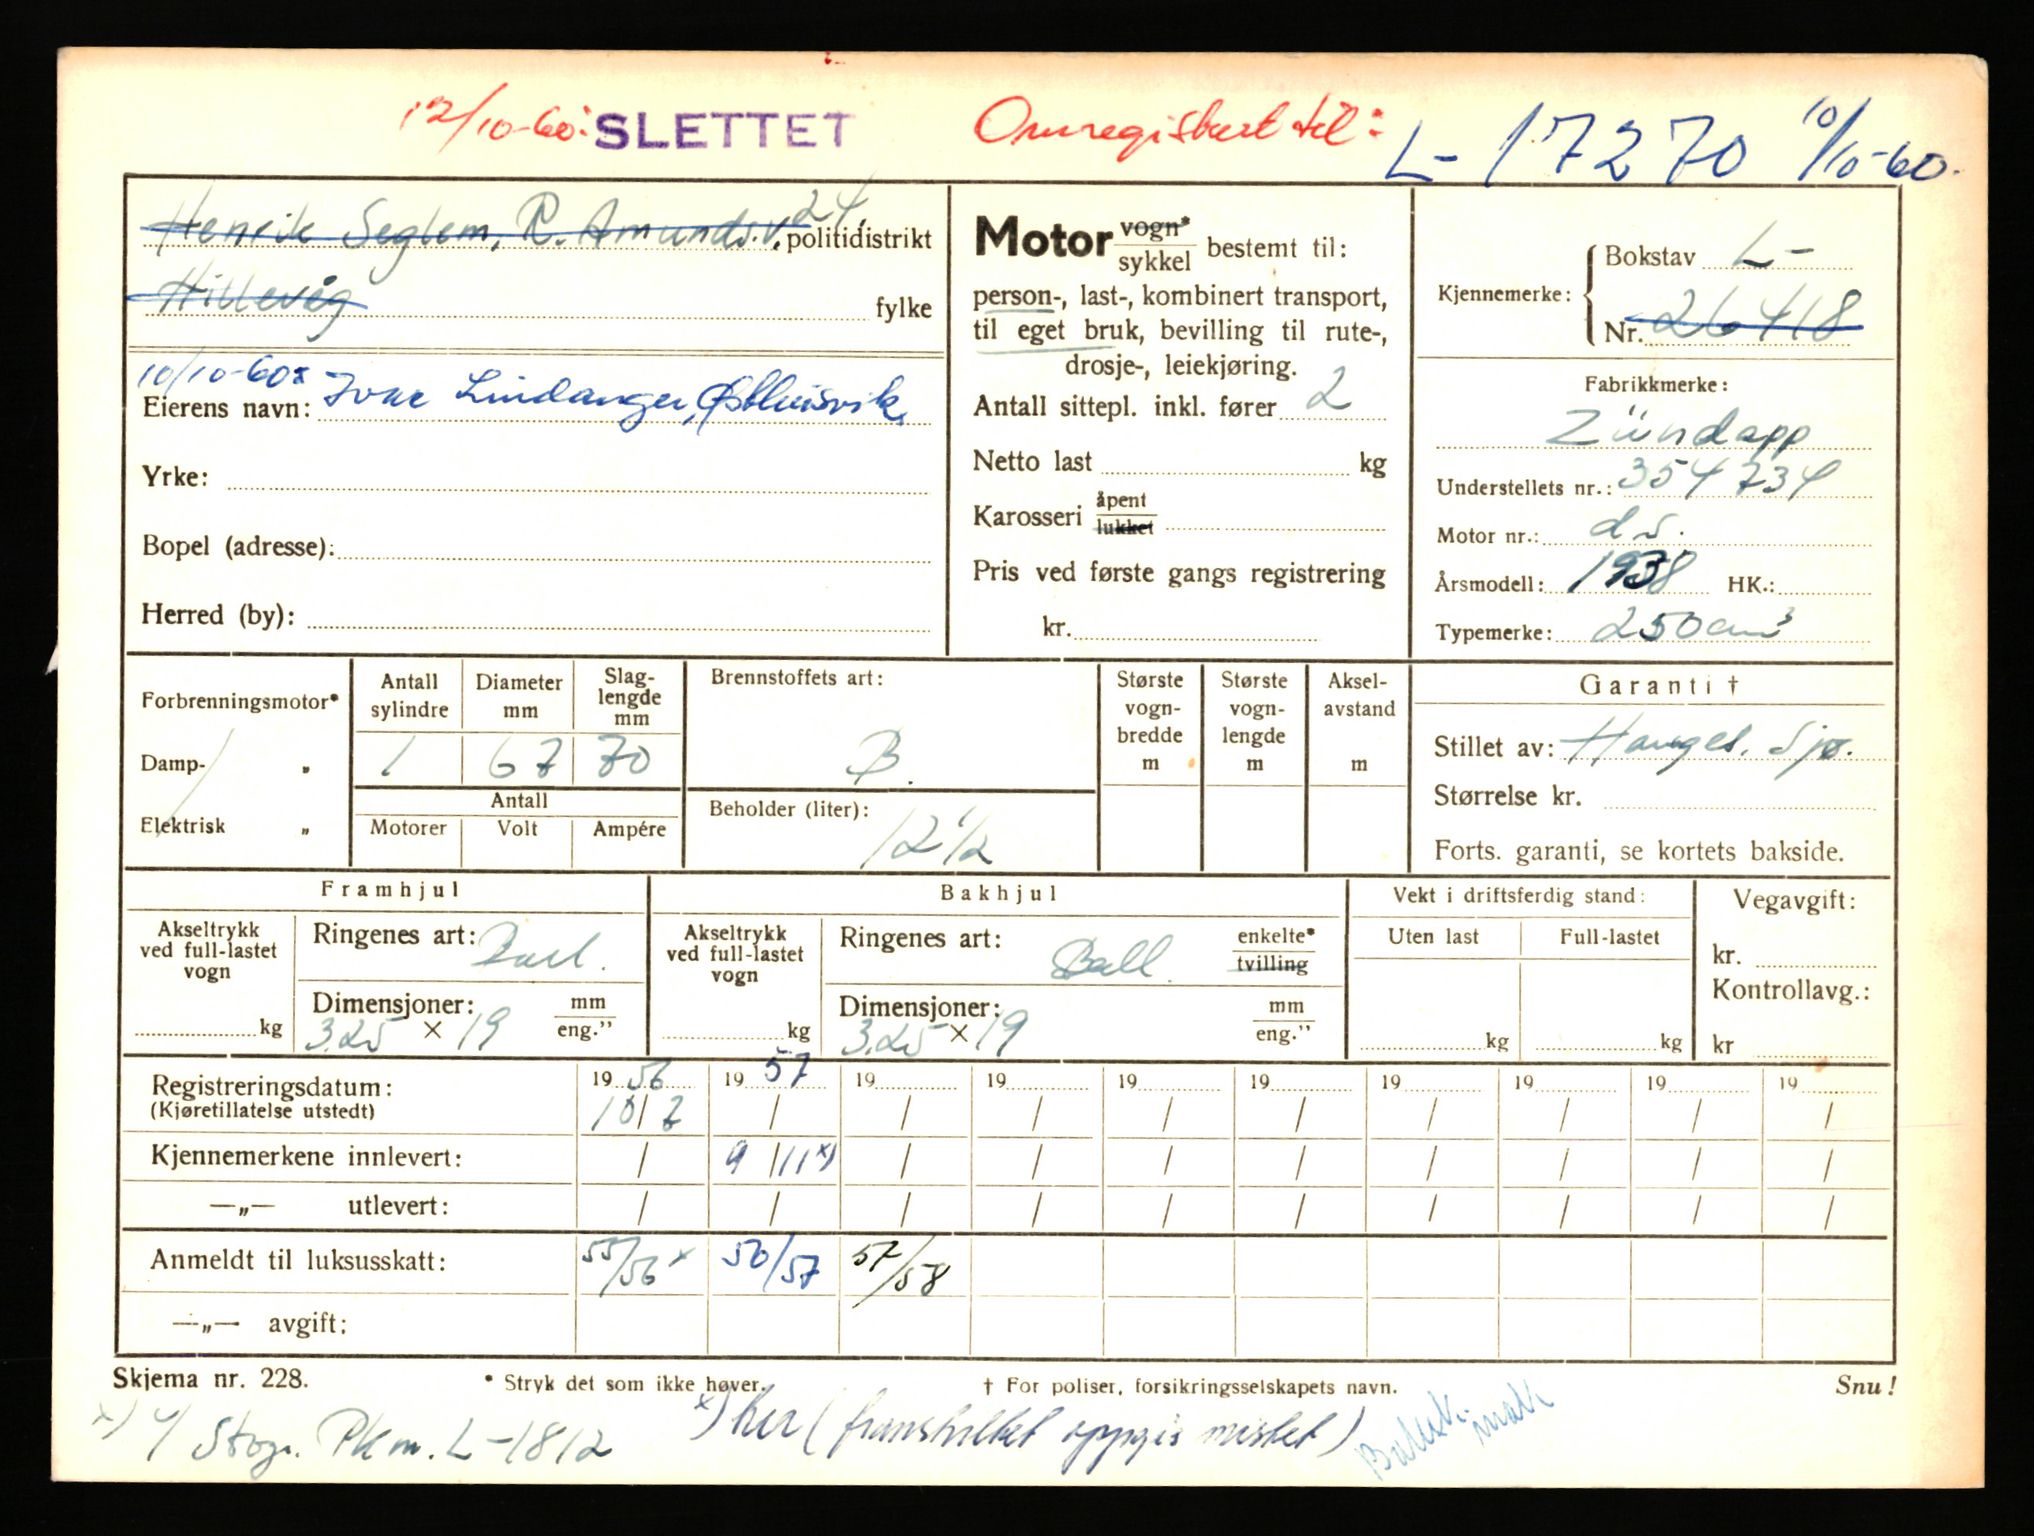 12/10-60: SLETTET Omregistrert til: L-17270 10/10-60.
Henrik Seglem, R. Amunds.v. 24, politidistrikt
Hillevåg fylke
10/10-60:
Eierens navn: Ivar Lindanger, Østhusvik.
Yrke:
Bopel (adresse):
Herred (by):
Motor vogn* / sykkel bestemt til:
person-, last-, kombinert transport,
til eget bruk, bevilling til rute-,
drosje-, leiekjøring.
Antall sittepl. inkl. fører 2
Netto last kg
Karosseri åpent / lukket
Pris ved første gangs registrering
kr.
Kjennemerke: Bokstav L-
Nr. 26418
Fabrikkmerke:
Zündapp
Understellets nr.: 354734
Motor nr.: ds.
Årsmodell: 1938 HK.:
Typemerke: 250 cm³
Forbrenningsmotor*
Damp- „
Elektrisk „
Antall sylindre Diameter mm Slag-lengde mm
1 67 70
Antall
Motorer Volt Ampére
Brennstoffets art:
B.
Beholder (liter):
12 1/2
Største vogn-bredde m
Største vogn-lengde m
Aksel-avstand m
Garanti †
Stillet av: Hauges. Sjø.
Størrelse kr.
Forts. garanti, se kortets bakside.
Framhjul
Akseltrykk ved full-lastet vogn
kg
Ringenes art:
Dimensjoner: mm / eng."
3.25 × 19
Bakhjul
Akseltrykk ved full-lastet vogn
kg
Ringenes art: Ball. enkelte* / tvilling
Dimensjoner: mm / eng."
3.25 × 19
Vekt i driftsferdig stand:
Uten last Full-lastet
kg kg
Vegavgift:
kr.
Kontrollavg.:
kr
Registreringsdatum: 19 56 19 57 19 19 19 19 19 19 19 19
(Kjøretillatelse utstedt) 10/2 / / / / / / / / /
Kjennemerkene innlevert: / 9/11 x) / / / / / / / /
—„— utlevert: / / / / / / / / / /
Anmeldt til luksusskatt: 55/56 x 56/57 57/58
—„— avgift:
Skjema nr. 228. * Stryk det som ikke høver. † For poliser, forsikringsselskapets navn. Snu!
x) 4/ Stog. Pkm. L-1812 x) her (framskiltet oppgis mistet)